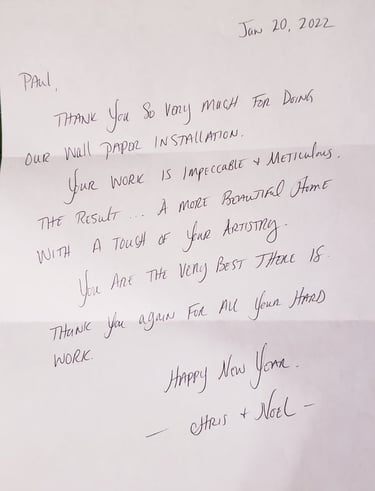 Jan 20, 2022
Paul,
Thank you so very much for doing
our wall paper installation.
Your work is impeccable + meticulous.
The result... A more beautiful home
with a touch of your artistry.
You are the very best there is.
Thank you again for all your hard
work.
Happy New Year.
- Chris + Noel -